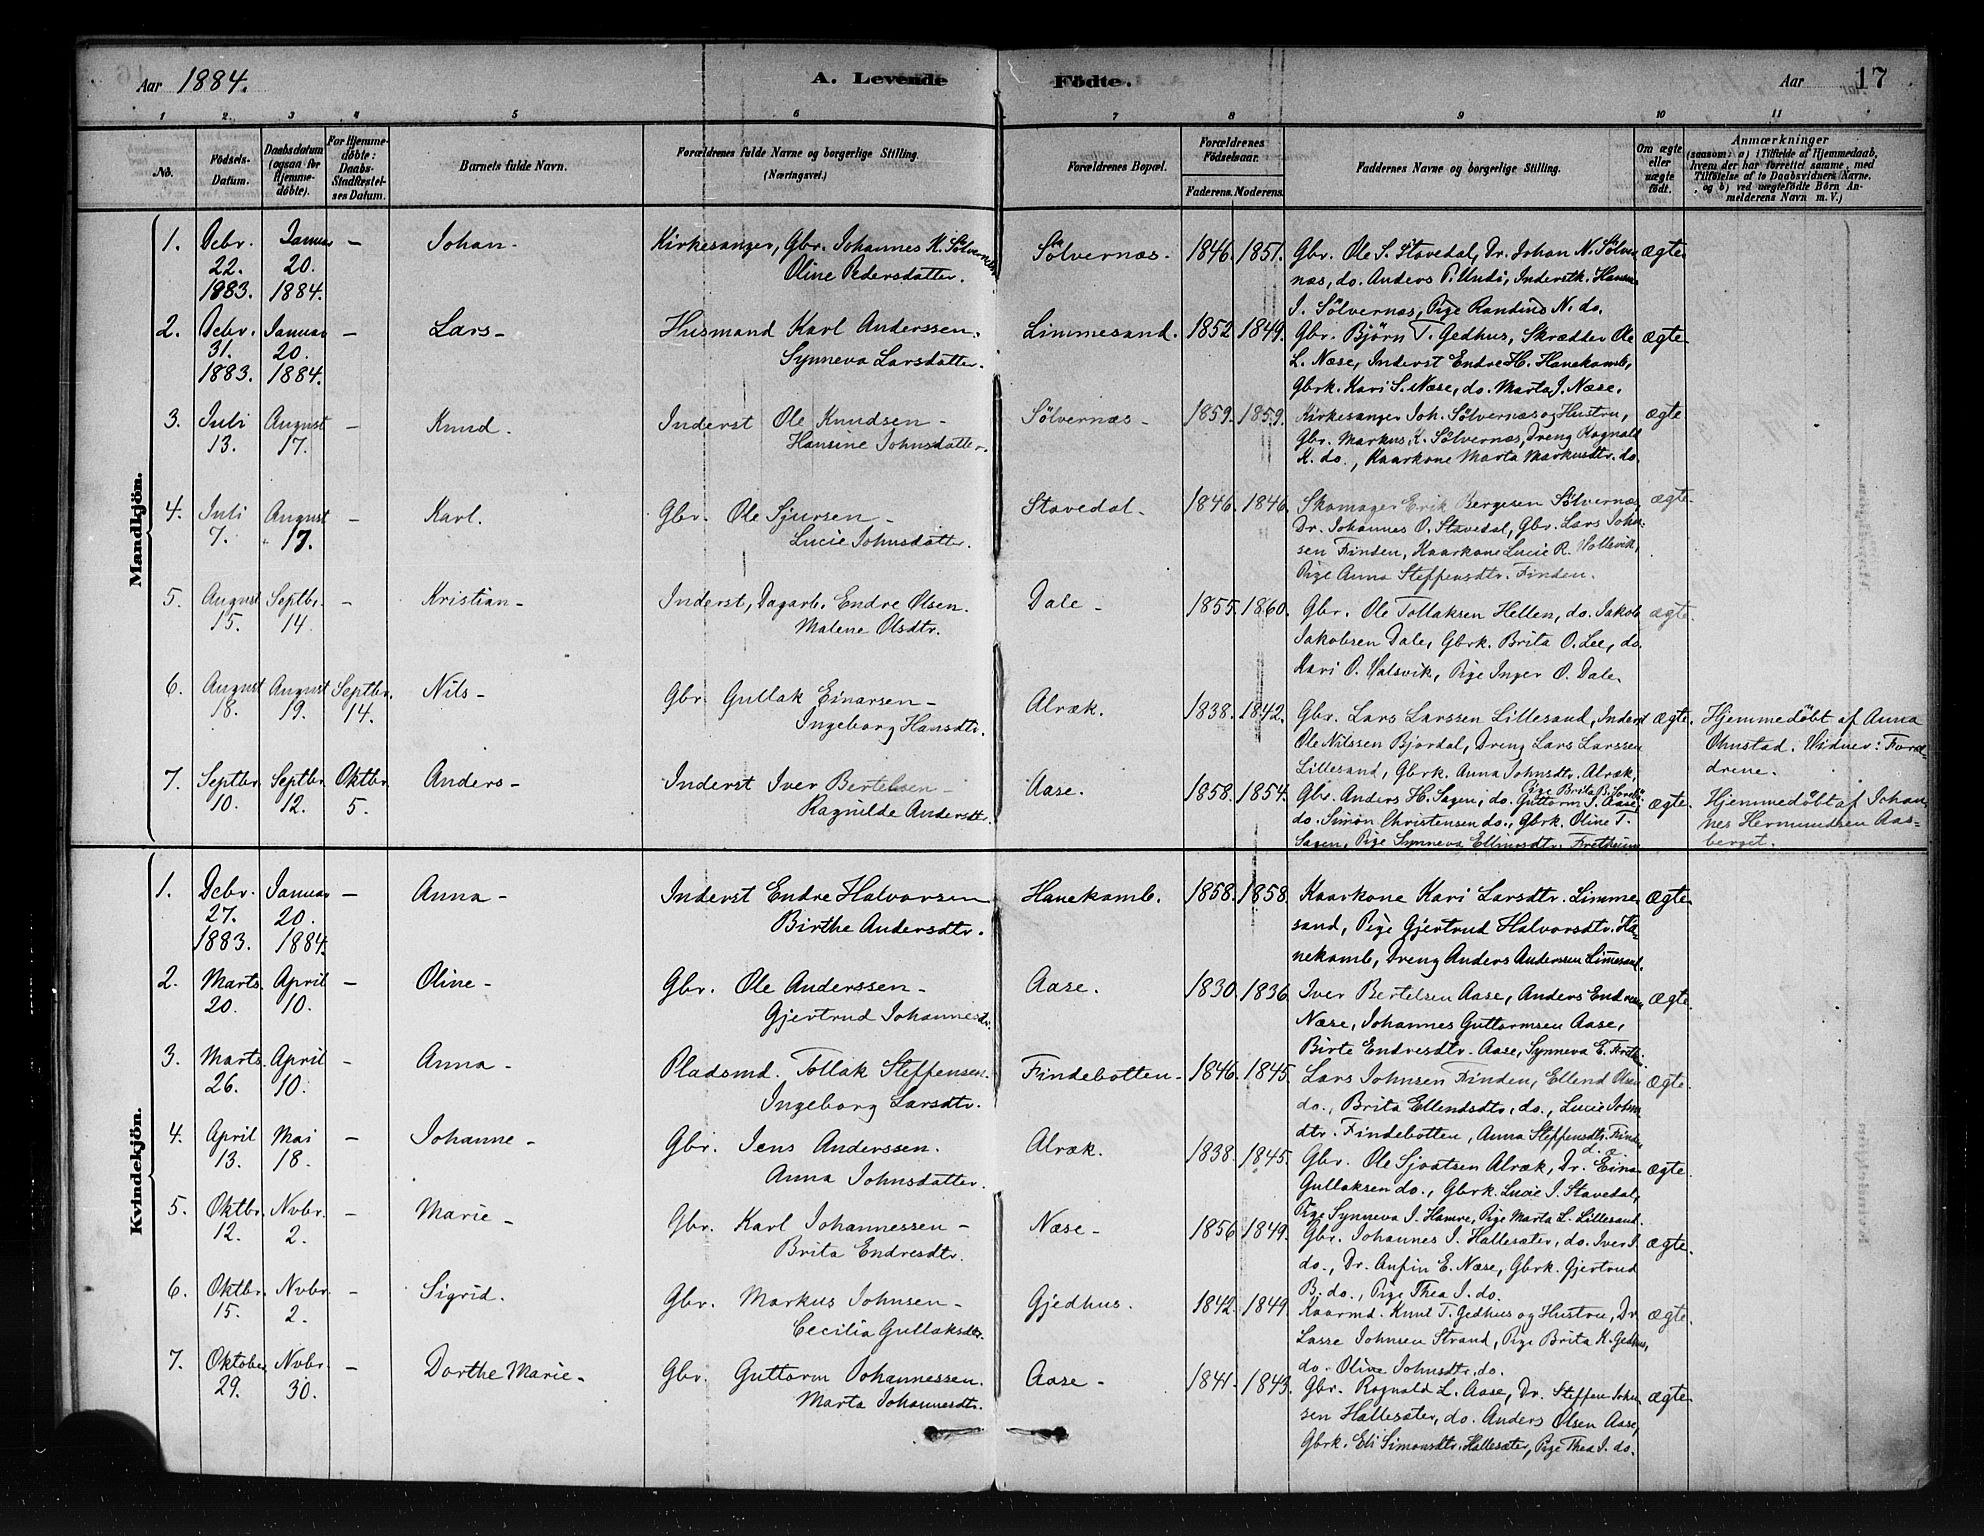 Aar 1884.
A. Levende Födte.
Aar 17
1 2. 3 4 5 6 7 8 9 10 11
No.
Födsels-Datum.
Daabsdatum (ogsaa for Hjemme-döbte).
For Hjemme-döbte: Daabs-Stadfæstel-ses Datum.
Barnets fulde Navn.
Forældrenes fulde Navne og borgerlige Stilling. (Næringsvei.)
Forældrenes Bopæl.
Forældrenes Födselsaar. Faderens. Moderens.
Faddernes Navne og borgerlige Stilling.
Om ægte eller uægte födt.
Anmærkninger
(saasom: a) i Tilfælde af Hjemmedaab, hvem der har forrettet samme, med Tilföielse af to Daabsvidners Navne, og b) ved uægtefödte Börn An-melderens Navn m. V.)
Mandkjön.
1. Debr. 22. 1883. Januar 20. 1884. – Johan – Kirkesanger, Gbr. Johannes K. Sölvernæs
Oline Pedersdatter. Sölvernæs. 1846. 1851. Gbr. Ole S. Stavedal, Dr. Johan N. Sölver- ægte
næs, do. Anders P. Undi, Inderstk. Hansine
J. Sölvernæs, Pige Randine N. do.
2. Debr. 31. 1883. Januar 20. 1884. – Lars – Husmand Karl Anderssen.
Synneva Larsdatter. Limmesand. 1852 1849. Gbr. Bjørn T. Gedhus, Skrædder Ole ægte.
L. Næse, Inderst Endre H. Hanekamb,
Gbrk. Kari S. Næse, do. Marta J. Næse.
3. Juli 13. August 17. – Knud. Inderst Ole Knudsen –
Hansine Johnsdatter. Sölvernæs – 1859. 1859. Kirkesanger Joh. Sölvernæs og Hustru, ægte
Gbr. Markus K. Sölvernæs, Dreng Ragnald
K. do., Kaarkone Marta Markusdtr. do.
4. Juli 7. August 17. – Karl. Gbr. Ole Sjursen –
Lucie Johnsdatter. Stavedal – 1846. 1846. Skomager Erik Bergesen Sölvernæs, ægte.
Dr. Johannes O. Stavedal, Gbr. Lars John-
sen Finden, Kaarkone Lucie R. Hollevik,
Pige Anna Steffensdtr. Finden.
5. August 15. Septbr. 14. – Kristian – Inderst, Dagarb. Endre Olsen.
Malene Olsdtr. Dale – 1855. 1860. Gbr. Ole Tollaksen Hellen, do. Jakob ægte.
Jakobsen Dale, Gbrk. Brita O. Lee, do.
Kari O. Valsvik, Pige Inger O. Dale.
6. August 18. August 19. Septbr. 14. Nils – Gbr. Gullak Einarsen –
Ingeborg Hansdtr. Alræk. 1838. 1842. Gbr. Lars Larssen Lillesand, Inderst ægte. Hjemmedøbt af Anna
Ole Nilssen Bjordal, Dreng Lars Larssen Ohnstad. Vidner: Foræl-
Lillesand, Gbrk. Anna Johnsdtr. Alræk, drene.
Pige Brita B.
7. Septbr. 10. Septbr. 12. Oktbr. 5. Anders – Inderst Iver Bertelsen –
Ragnilde Andersdtr. Aase. 1858. 1854. Gbr. Anders H. Sagen, do. Guttorm J. Aase, ægte. Hjemmedøbt af Johan-
do. Simon Christensen do., Gbrk. Oline T. nes Hermundsen Aas-
Sagen, Pige Synneva Ellingsdtr. Fretheim berget.
Kvindekjön.
1. Debr. 27. 1883. Januar 20. 1884. – Anna – Inderst Endre Halvorsen
Birthe Andersdtr. Hanekamb. 1858. 1858. Kaarkone Kari Larsdtr. Limme- ægte.
sand, Pige Gjertrud Halvorsdtr. Ha-
nekamb, Dreng Anders Anderssen Limesand.
2. Marts 20. April 10. – Oline – Gbr. Ole Anderssen –
Gjertrud Johannesdtr. Aase. 1830. 1836. Iver Bertelsen Aase, Anders Endresen ægte.
Næse, Johannes Guttormsen Aase,
Birte Endresdtr. Aase, Synneva E.
3. Marts 26. April 10. – Anna – Pladsmd. Tollak Steffensen.
Ingeborg Larsdtr. Findebotten – 1846. 1845. Lars Johnsen Finden, Ellend Olsen ægte.
do., Brita Ellendsdtr. do., Lucie Johns
dtr. Findebotten, Anna Steffensdtr. Finden
4. April 13. Mai 18. – Johanne – Gbr. Jens Anderssen.
Anna Johnsdatter. Alræk. 1838. 1845. Gbr. Ole Sjovatsen Alræk, Dr. Einar ægte.
Gullaksen do., Gbrk. Lucie J. Stavedal,
Pige Synneva J. Hamre, Pige Marta L. Lillesand.
5. Oktbr. 12. Nvbr. 2. – Marie – Gbr. Karl Johannessen –
Brita Endresdtr. Næse – 1856 1849. Gbr. Johannes J. Hallesæter, do. Iver J. ægte.
do., Dr. Anfin E. Næse, Gbrk. Gjertrud
B. do., Pige Thea J. do.
6. Oktbr. 15. Nvbr. 2. – Sigrid. Gbr. Markus Johnsen –
Cecilia Gullaksdtr. Gjedhus. 1842. 1849. Kaarmd. Knut T. Gedhus og Hustru, Dr. ægte.
Lasse Johnsen Strand, Pige Brita K. Gedhus,
do. Oline Johnsdtr. do.
7. Oktober 29. Nvbr. 30. – Dorthe Marie – Gbr. Guttorm Johannessen.
Marta Johannesdtr. Aase – 1841. 1843. Gbr. Rognald L. Aase, Dr. Steffen John- ægte.
sen Hallesæter, do. Anders Olsen Aase,
Gbrk. Eli Simonsdtr. Hallesæter, Pige Thea J. do.